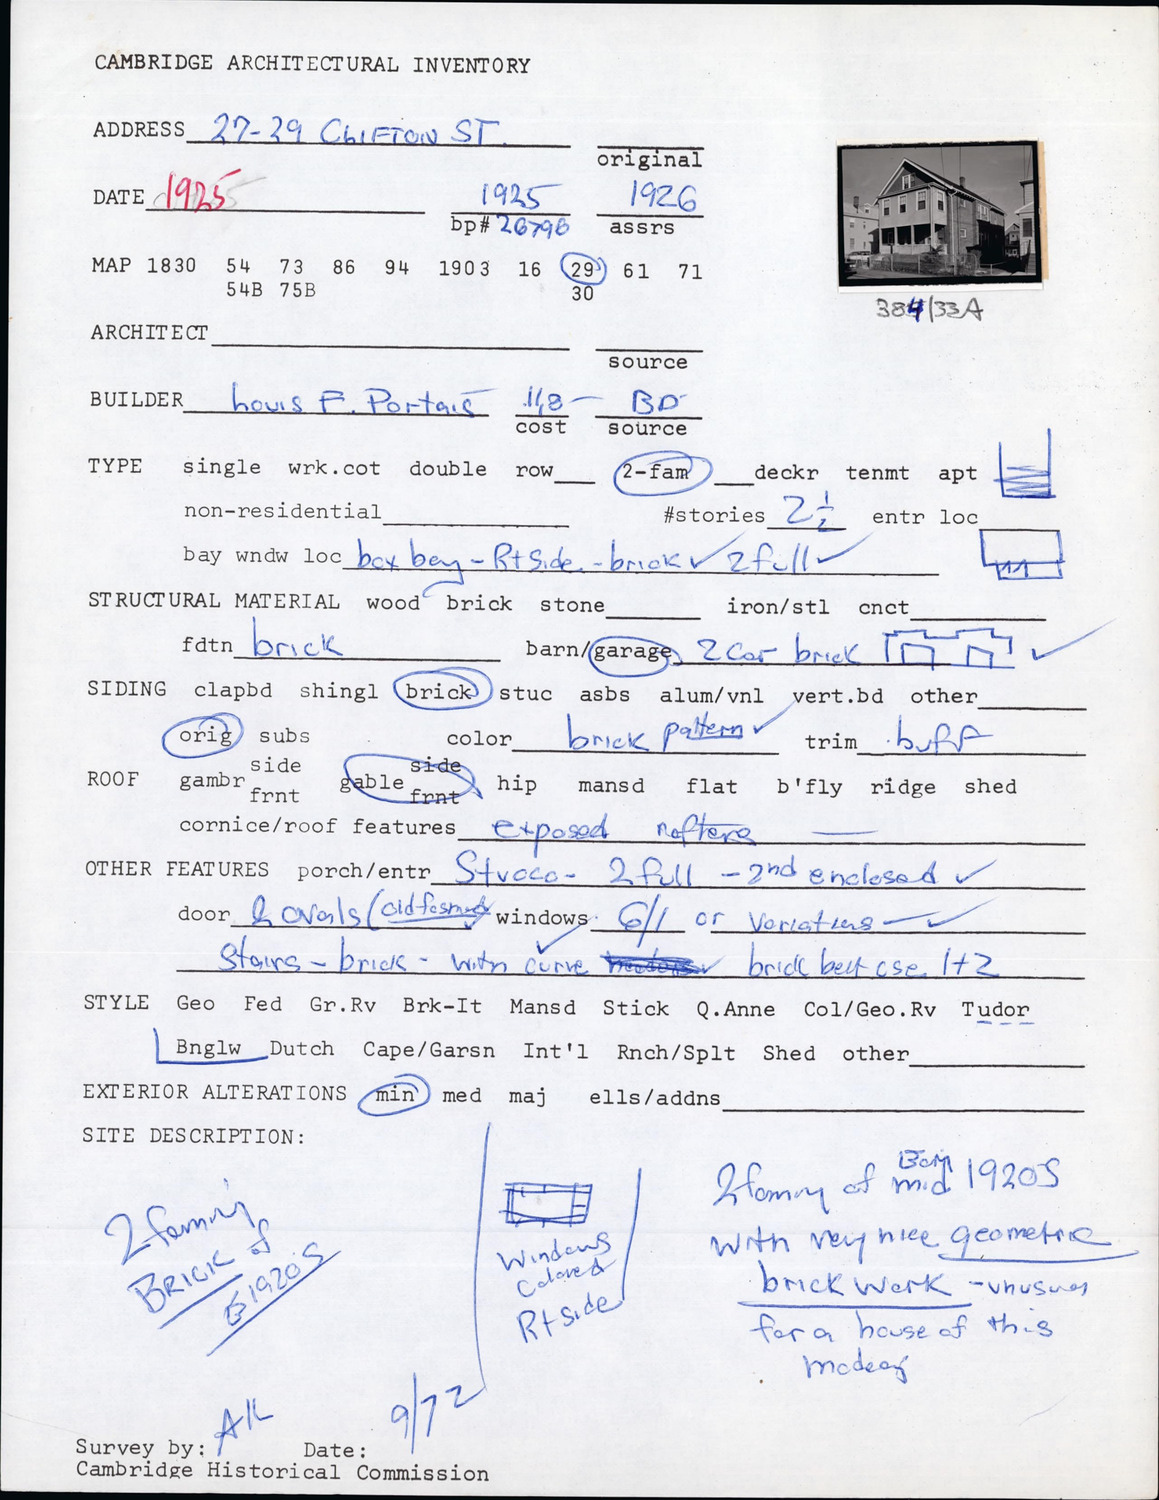 CAMBRIDGE ARCHITECTURAL INVENTORY
ADDRESS 27-29 CLIFTON ST.
original
DATE 1925 1925 1926
bp# 26798 assrs
MAP 1830 54 73 86 94 1903 16 29 61 71
54B 75B 30
384/33A
ARCHITECT
source
BUILDER Louis F. Portais 11,8— BD
cost source
TYPE single wrk.cot double row 2-fam deckr tenmt apt
non-residential #stories 2 1/2 entr loc
bay wndw loc box bay - Rt Side - brick ✓ 2 full ✓
STRUCTURAL MATERIAL wood brick stone iron/stl cnct
fdtn brick barn/garage 2 car brick ✓
SIDING clapbd shingl brick stuc asbs alum/vnl vert.bd other
orig subs color brick pattern ✓ trim buff
ROOF gambr side frnt gable side frnt hip mansd flat b'fly ridge shed
cornice/roof features exposed rafters —
OTHER FEATURES porch/entr Stucco - 2 full - 2nd enclosed ✓
door 2 ovals (old fashioned) windows 6/1 or variations — ✓
Stairs - brick - with curve ✓ brick belt cse 1+2
STYLE Geo Fed Gr.Rv Brk-It Mansd Stick Q.Anne Col/Geo.Rv Tudor
Bnglw Dutch Cape/Garsn Int'l Rnch/Splt Shed other
EXTERIOR ALTERATIONS min med maj ells/addns
SITE DESCRIPTION:
2 family
BRICK of
1920s
Windows
Colored
Rt side
2 family of mid 1920S
with very nice geometric
brick work - unusual
for a house of this
AK
9/72
Survey by: Date:
Cambridge Historical Commission